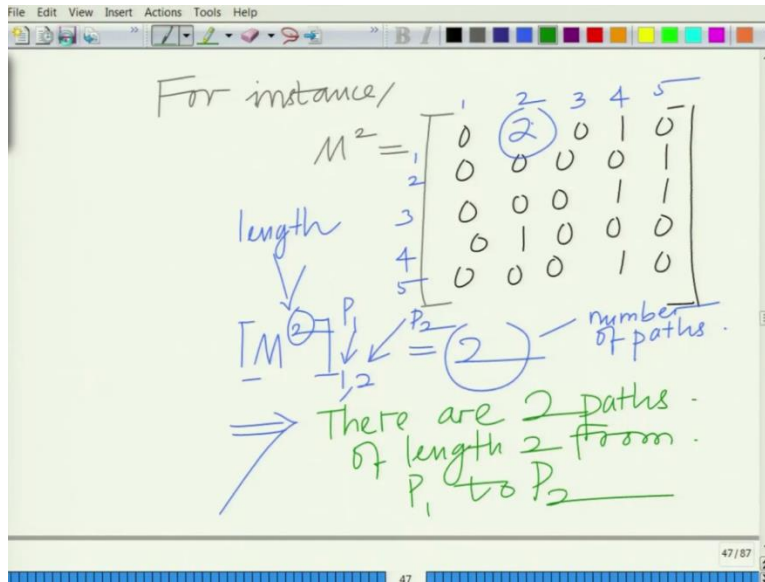 File Edit View Insert Actions Tools Help
B I
For instance,
1 2 3 4 5
M² =
1 0 2 0 1 0
2 0 0 0 0 1
3 0 0 0 1 1
4 0 1 0 0 0
5 0 0 0 1 0
length
[M²]1,2 = 2
P1 P2
number
of paths.
⇒ There are 2 paths.
of length 2 from.
P1 to P2
47/87
47